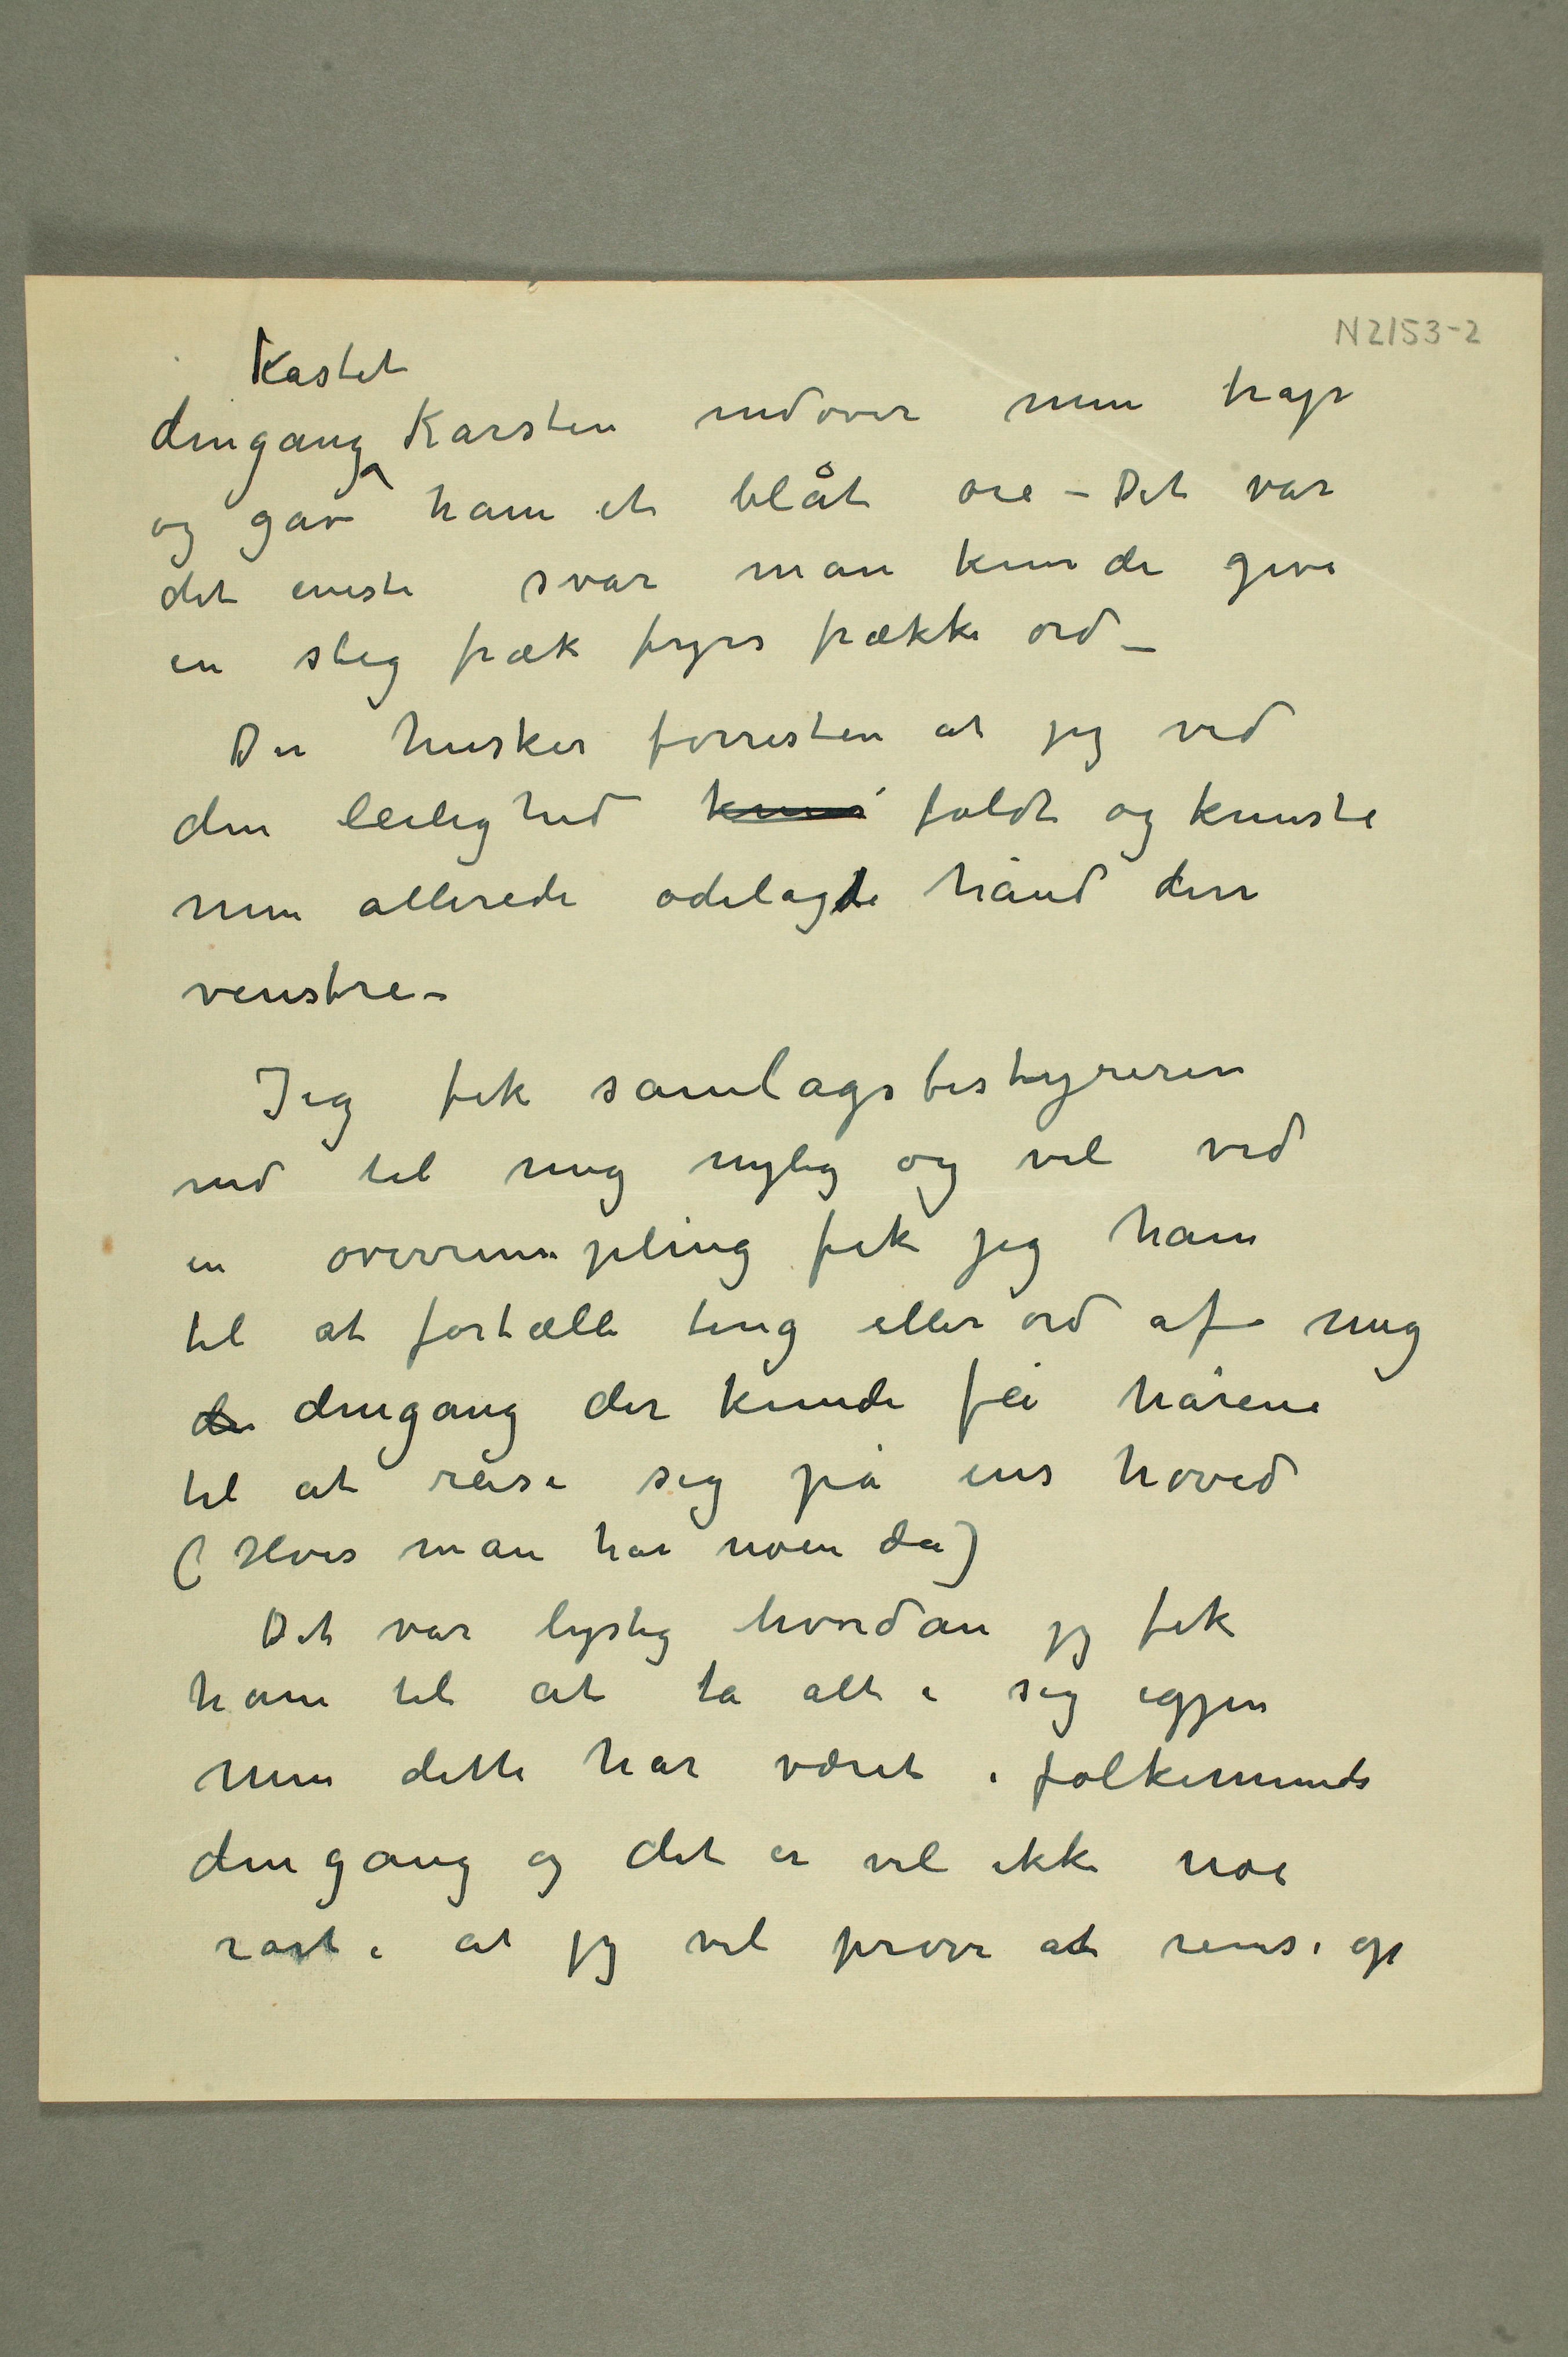 N 2153-2
Kastet
dengang Karsten nedover min trap
og gav ham et blåt øie – Det var
det eneste svar man kunde give
en slig fræk fyrs frække ord –
Du husker forresten at jeg ved
den leilighed faldt og knuste
min allerede ødelagte hånd den
venstre –
Jeg fik samlagsbestyreren
ned til mig nylig og vel ved
en overrumpling fik jeg ham
til at fortælle ting eller ord af mig
de dengang der kunde få hårene
til at reise sig på ens hoved
(Hvis man har noen da)
Det var lystig hvordan jeg fik
ham til at ta alt i sig igjen
Men dette har været i folkemunde
dengang og det er vel ikke noe
rart i at jeg vil prøve at rense op